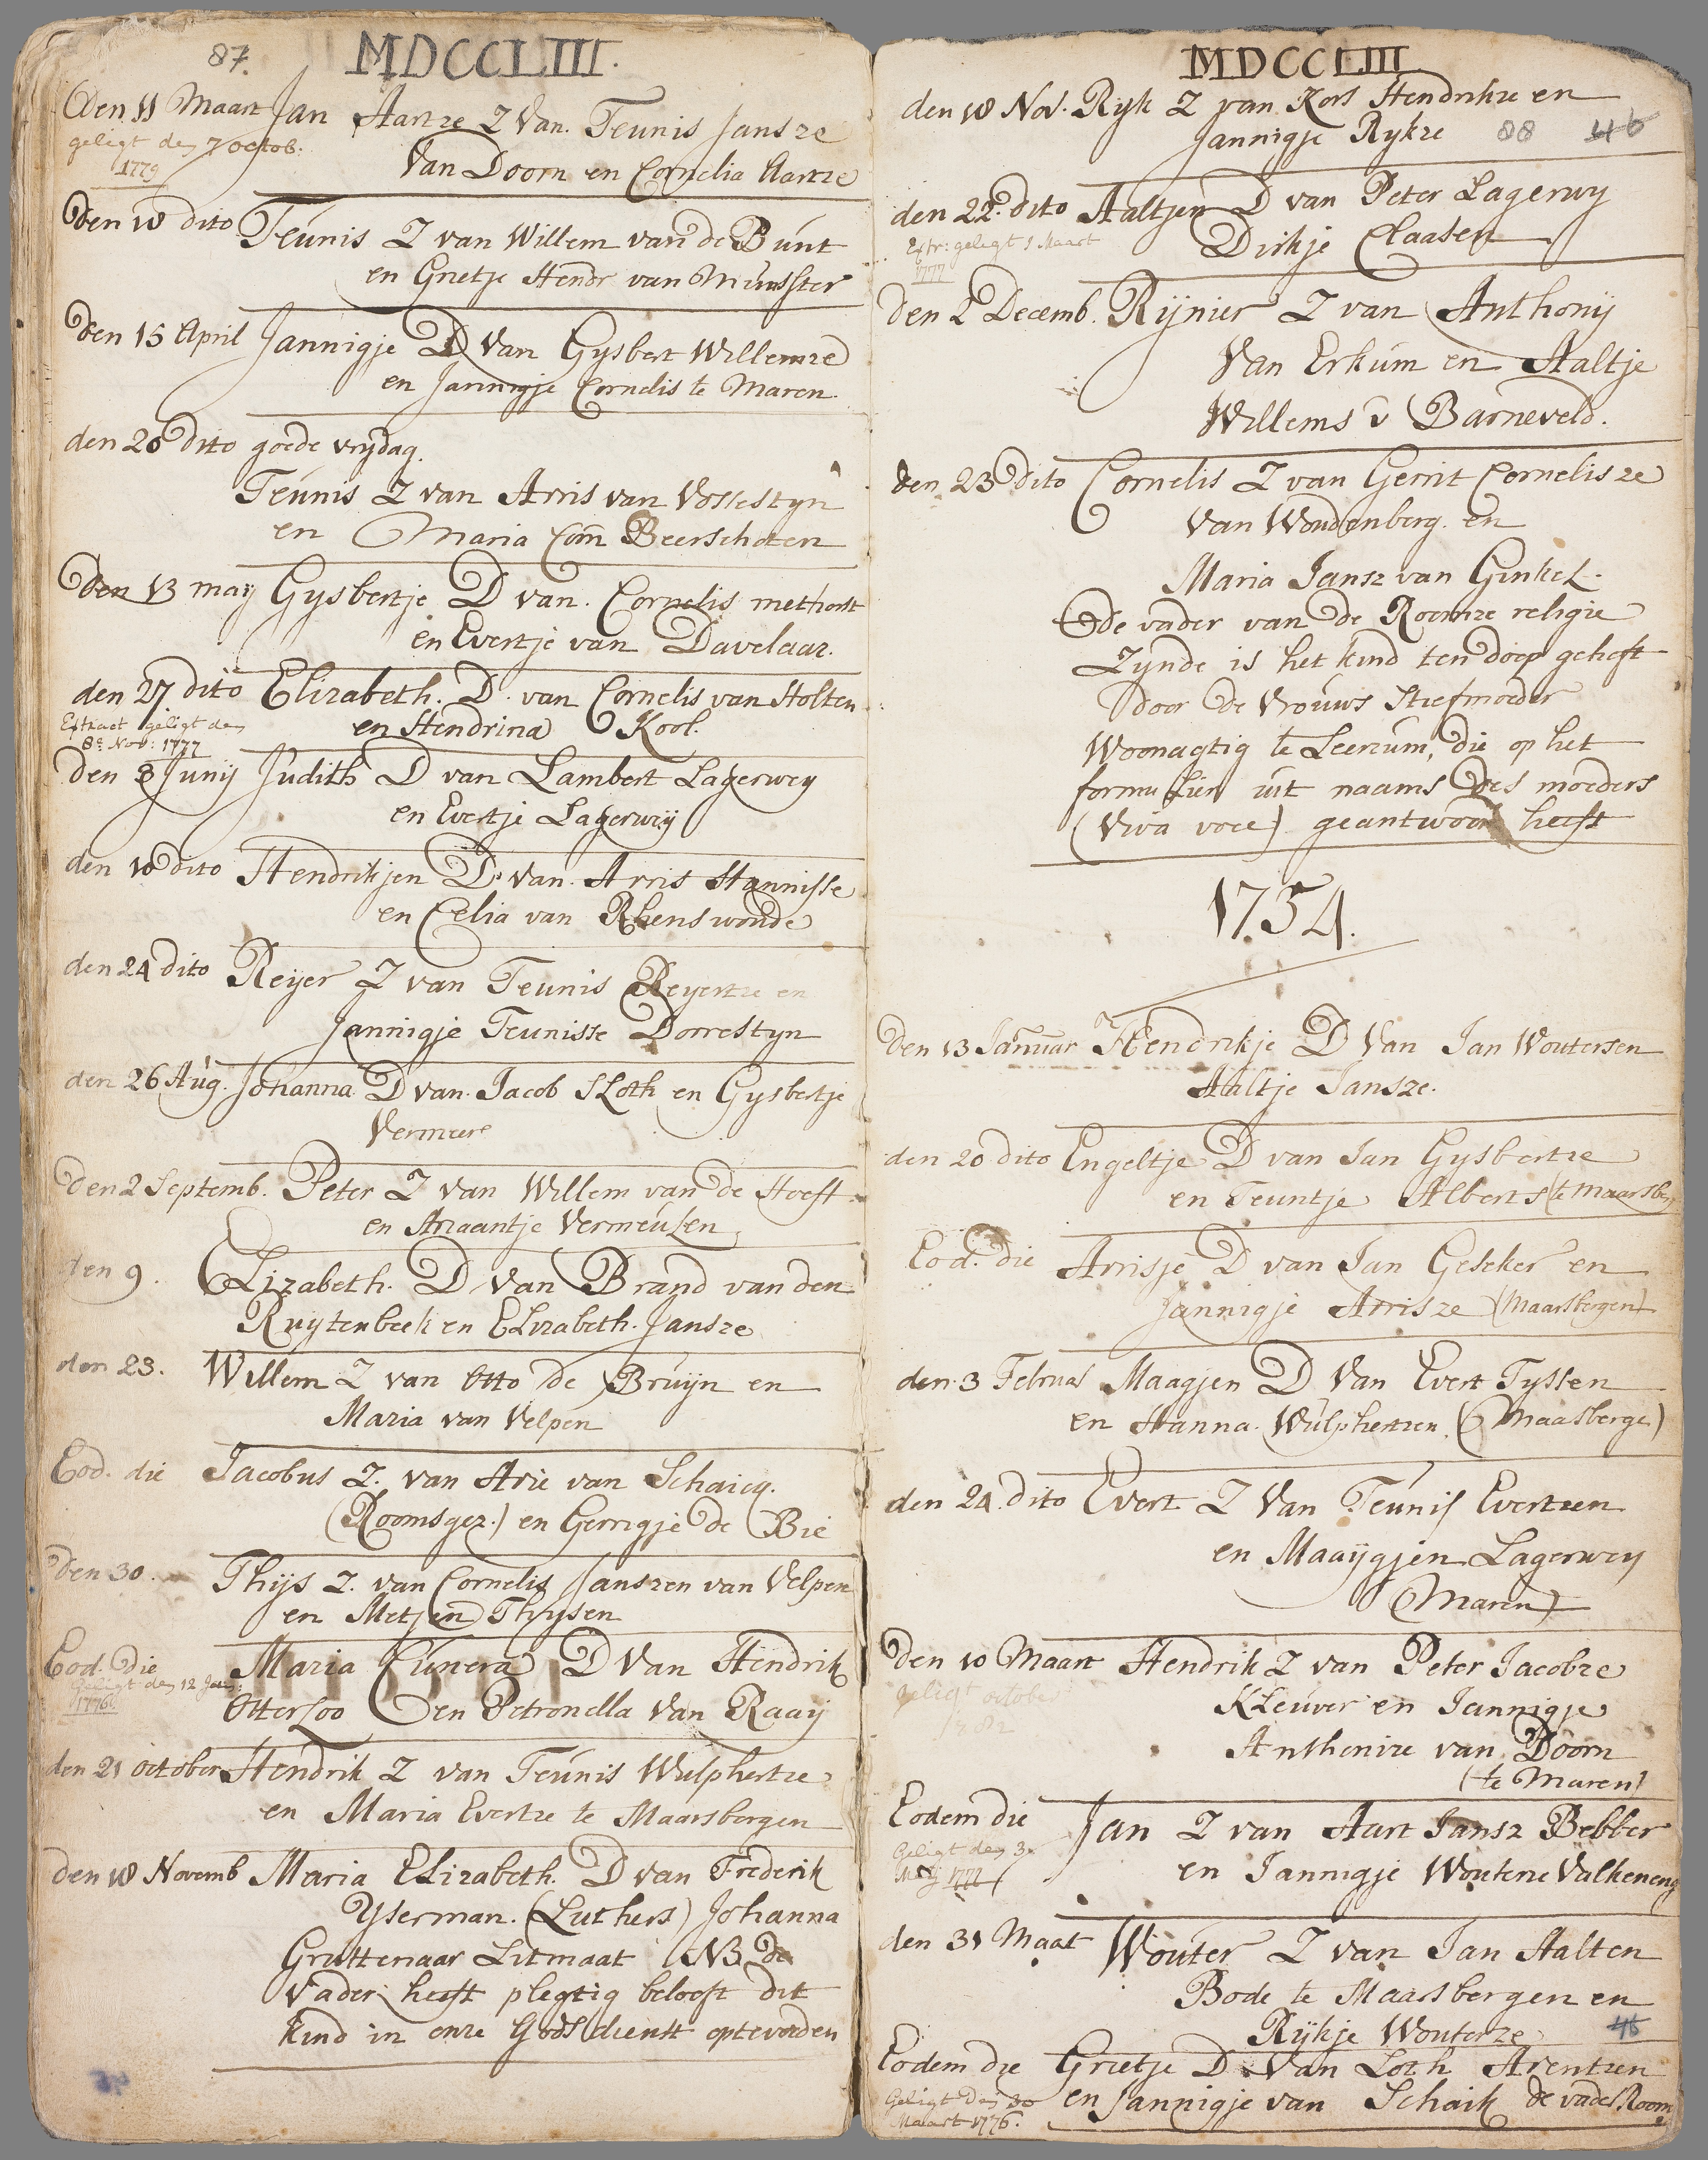 87. MDCCLIII.
Den 11 Maart Jan Aartze Z Van. Teunis Jansze
geligt den 7 octob:
1779
Van Doorn en Cornelia Aartze
Den 18 dito Teúnis Z van Willem van de Búnt
en Grietje Hendr van Múnster
den 15 April Jannigje D Van Gysbert Willemze
en Jannigje Cornelis te Maren.
den 20 dito goede vrydag.
Teúnis Z van Arris van Vossestyn
en Maria Corn Beerschoten
Den 13 maij Gysbertje D van. Cornelis methorst
en Evertje van Davelaar.
den 27 dito Elizabeth. D. van Cornelis van Holten
Extract geligt den
8e Nov: 1777
en Hendrina Kool.
Den 3 Junij Judith D van Lambert Lagerwey
en Evertje Lagerweij
den 10 dito Hendrikjen D. Van. Arris Hannisse
en Celia van Rhenswoude
den 24 dito Reijer Z van Teunis Reyertze en
Jannigje Teunisse Dorrestyn
den 26 Aúg. Johanna D van. Jacob SLoth en Gysbertje
Vermeere
Den 2 Septemb. Peter Z van Willem van de Hoeft
en Ariaantje Vermeúlen
den 9. Elizabeth. D Van Brand van den
Ruytenbeek en Elizabeth. Jansze
den 23. Willem Z van Otto de Brúijn en
Maria van Velpen
Eod. die Jacobus Z. van Arie van Schaicq.
(Roomsgez.) en Gerrigje de Bie
Den 30. Thijs Z. van Cornelis Janszen van Velpen
en Metjen Thysen
Eod. Die Maria Cúnera D Van Hendrik
Geligt den 12 Jan:
1776.
Otterloo en Petronella Van Raaij
den 21 october Hendrik Z van Teúnis Wulphertze
en Maria Evertze te Maarsbergen
den 18 Novemb Maria Elizabeth. D van Frederik
Yserman. (Luthers) Johanna
Gruttenaar Litmaat NB de
Vader heeft plegtig belooft dit
kind in onze Godsdienst optevoeden
MDCCLIII
den 18 Nov. Ryk Z van Kors Hendrikze en
Jannigje Rykze 88 46
den 22. dito Aaltjen D van Peter Lagerwy
Extr: geligt 1 Maart
1777
Dirkje Claasen
den 2 Decemb. Rijnier Z van Anthonij
Van Erkúm en Aaltje
Willems v Barneveld.
den 23 dito Cornelis Z van Gerrit Cornelisze
Van Woudenberg. en
Maria Jansz van Ginkel.
de vader van de Roomze religie
Zynde is het kind ten doop geheft
door de Vroúws Stiefmoeder
Woonagtig te Leersum, die op het
formulier uit naams des moeders
(Viva voce) geantwoord heeft
1754.
Den 13 Januar Hendrikje D Van Jan Woutersen
Aaltje Jansze.
den 20 dito Engeltje D van Jan Gysbertze
en Teuntje Alberts (te Maarsberg
Eod. die Arrisje D van Jan Geseker en
Jannigje Arrisze (Maarsbergen)
den 3 Februar Maagjen D Van Evert Tyssen
en Hanna. Wúlphertzen (Maasberge)
den 24. dito Evert Z Van Teúnis Evertzen
en Maaijgjen Lagerwey
(Maren)
Den 10 Maart Hendrik Z van Peter Jacobze
geligt october
1782
Kleúver en Jannigje
Anthenize van Doorn
(te Maren)
Eodem die Jan Z van Aart Jansz Bebber
Geligt den 3
Meij 1777
en Jannigje Woutene Valkeneng
den 31 Maat Woúter Z van Jan Aalten
Bode te Maarsbergen en
Rijkje Wouterze 46
Eodem die Grietje D Van Loth Arentzen
Geligt den 30
Maart 1776.
en Jannigje van Schaik de vader Room